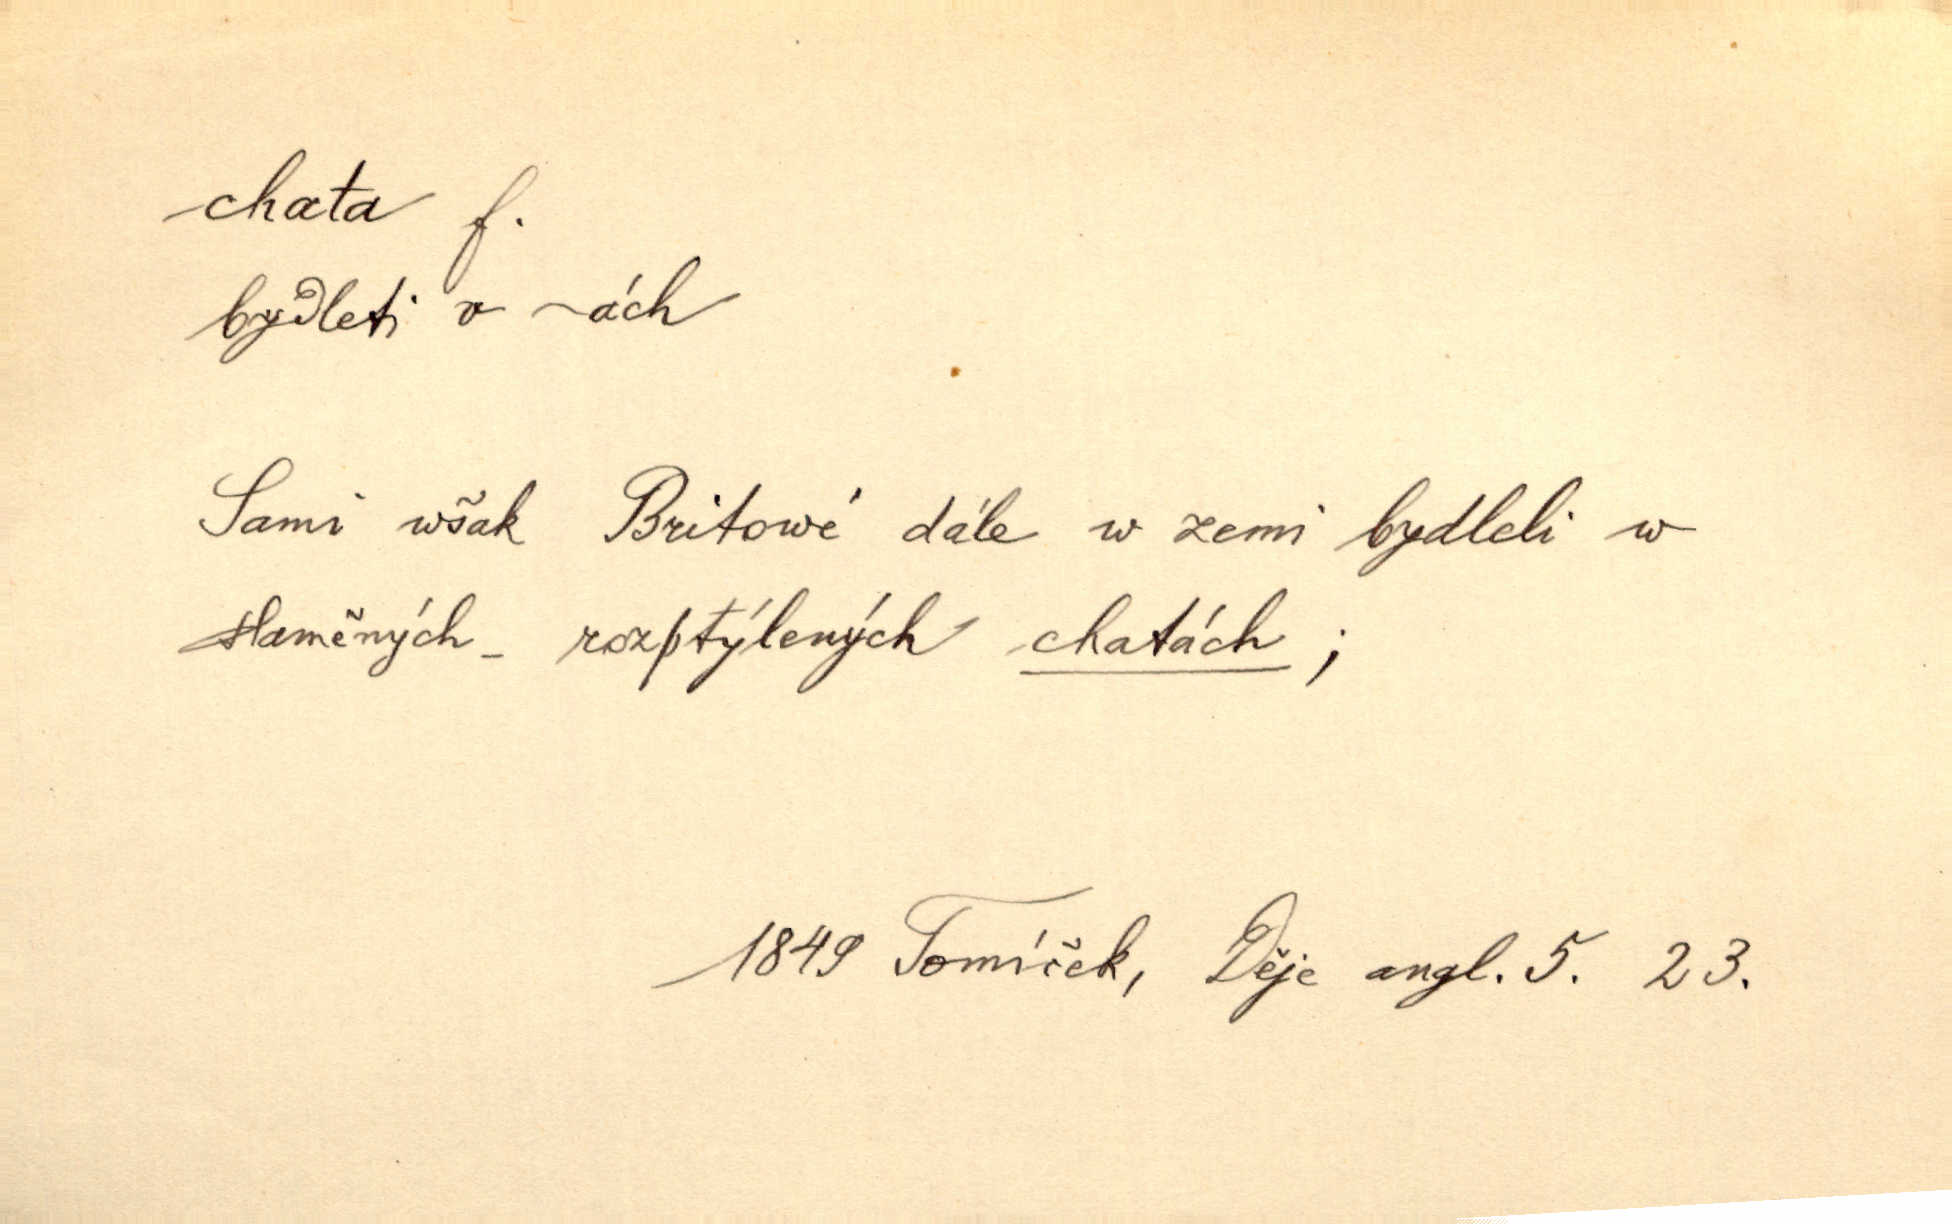 chata f.
bydleti v ~ách
Sami wšak Britowé dále w zemi bydleli w
slaměných - rozptýlených chatách ;
1849 Tomíček, Děje angl. 5. 23.